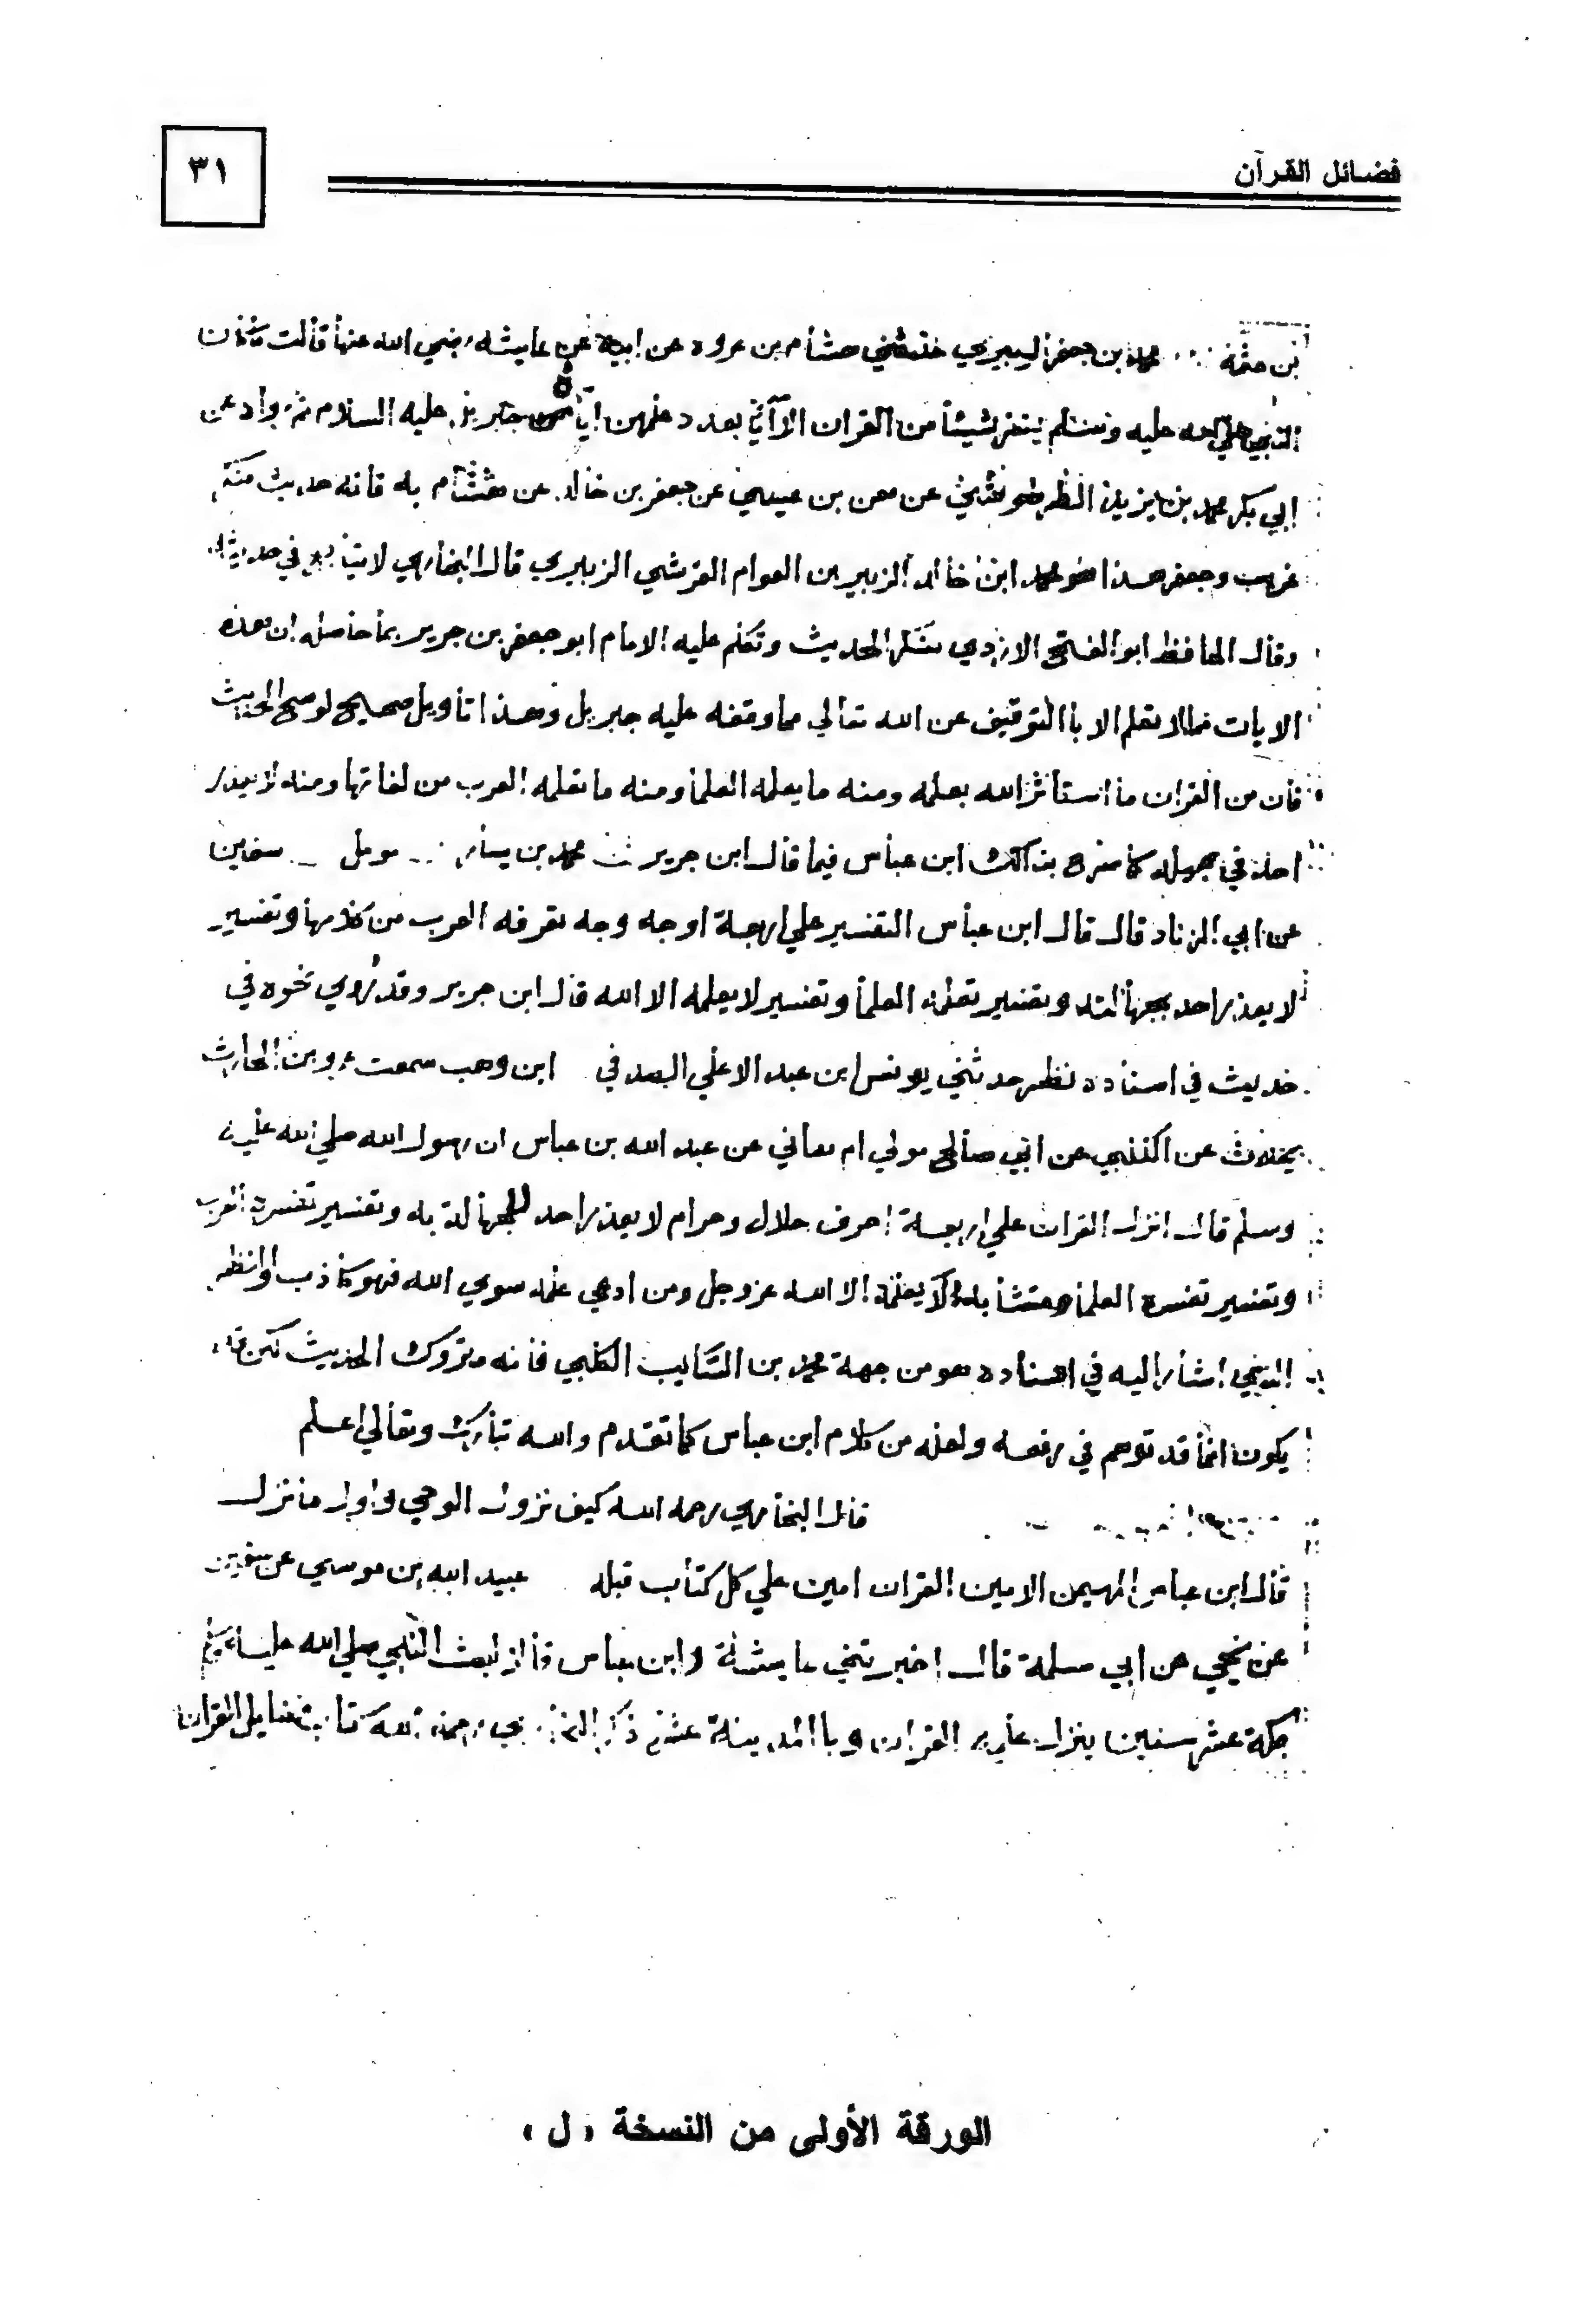 فضائل القرآن
٣١
بن عثمة محمد بن جعفر الزبيري حدثني هشام بن عروه عن ابيه عن عايشه رضي الله عنها قالت ما كان
النبي صلي الله عليه وسلم يفسر شيئا من القران الا آيا بعدد علمهن اياه جبريل عليه السلام ثم رواه عن
ابي بكر محمد بن يزيد الطرطوشي عن معن بن عيسي عن جعفر بن خالد عن هشام به فانه حديث منكر
غريب وجعفر هذا هو محمد ابن خالد الزبير بن العوام القرشي الزبيري قال البخاري لا يتابع في حديثه
وقال الحافظ ابو الفتح الازدي منكر الحديث وتكلم عليه الامام ابو جعفر بن جرير بما حاصله ان هذه
الايات مما لا يعلم الا باالتوقيف عن الله تعالي مما وقفه عليه جبريل وهذا تأويل صحيح لو صح الحديث
فان من القران ما استأثر الله بعلمه ومنه ما يعلمه العلما ومنه ما تعلمه العرب من لغاتها ومنه لا يعذر
احد في جهله كما صرح بذالك ابن عباس فيما قال ابن جرير محمد بن بشار مومل سفين
عن ابي الزناد قال قال ابن عباس التفسير علي اربعة اوجه وجه تعرفه العرب من كلامها وتفسير
لا يعذر احد بجهالته وتفسير تعلمه العلما وتفسير لا يعلمه الا الله قال ابن جرير وقد روي نحوه في
حديث في اسناده نظر حدثني يونس ابن عبد الاعلي الصدفي ابن وهب سمعت عمرو بن الحارث
يحدث عن الكلبي عن ابي صالح مولي ام هاني عن عبد الله بن عباس ان رسول الله صلي الله عليه
وسلم قال انزل القران علي اربعة احرف حلال وحرام لا يعذر احد للجهالة به وتفسير تفسره العرب
وتفسير تفسره العلما ومتشابه لا يعلمه الا الله عز وجل ومن ادعي علمه سوي الله فهو كاذب والنظر
الذي اشار اليه في اسناده هو من جهة محمد بن السايب الكلبي فانه متروك الحديث لكن قد
يكون انما قد توهم في رفعه ولعله من كلام ابن عباس كما تقدم والله تبارك وتعالي اعلم
قال البخاري رحمه الله كيف نزول الوحي واول ما نزل
قال ابن عباس المهيمن الامين القران امين علي كل كتاب قبله عبيد الله بن موسي عن
عن يحيي عن ابي سلمة قال اخبرتني عايشة وابن عباس قالا لبث النبي صلي الله عليه وسلم
بمكة عشر سنين ينزل عليه القران وباالمدينة عشر ذكر البخاري رحمه الله كتاب فضايل القران
الورقة الأولى من النسخة « ل »